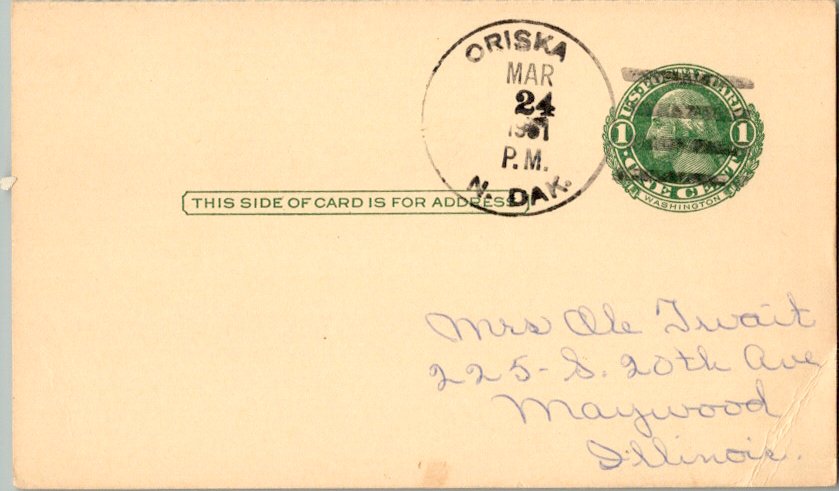 ORISKA
MAR
24
P.M.
N. DAK.
U.S. POSTAL CARD
1 1
ONE CENT
WASHINGTON
THIS SIDE OF CARD IS FOR ADDRESS
Mrs Ole Twait
225- S. 20th Ave
Maywood
Illinois.